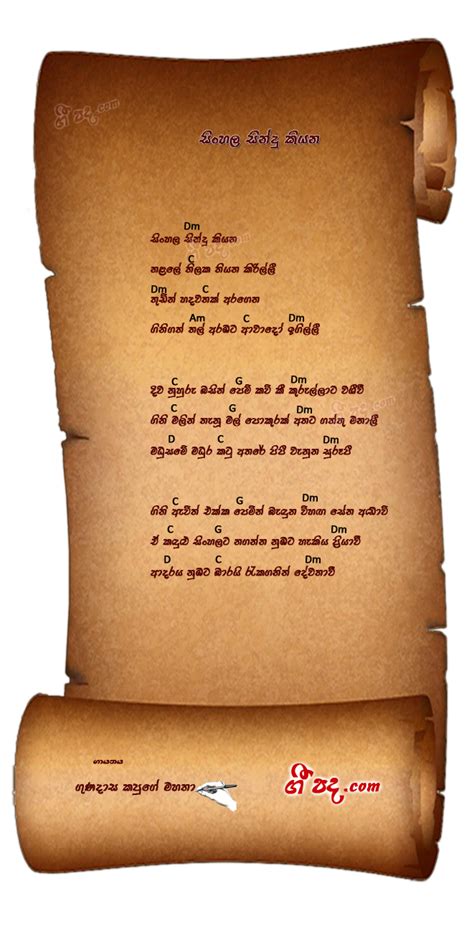 ගී පද.com
සිංහල සින්දු කියන
Dm
සිංහල සින්දු කියන
C
නළලේ තිලක තියන කිරිල්ලී
Dm C
තුඩින් හදවතක් අරගෙන
Am C Dm
ගිනිගත් තල් අරඹට ආවාදෝ ඉගිල්ලී
C G Dm
දිව නුහුරු බසින් පෙම් කවි කී කුරුල්ලාට වඩීවී
C G Dm
ගිනි මලින් තැනූ මල් පොකුරක් අතට ගත්තු මනාලී
D C Dm
මධුසමේ මධුර කටු අතරේ පිපී වැනුන සුරූපී
C G Dm
ගිනි ඇවිත් එක්ක පෙමින් බැඳුන විහඟ සේන අඬාවී
C G Dm
ඒ කඳුළු සිංහලට නගන්න නුඹට හැකිය ප්‍රියාවී
D C Dm
ආදරය නුඹට බාරයි රැකගනින් දේවතාවී
ගායනය
ගුණදාස කපුගේ මහතා
ගී පද.com